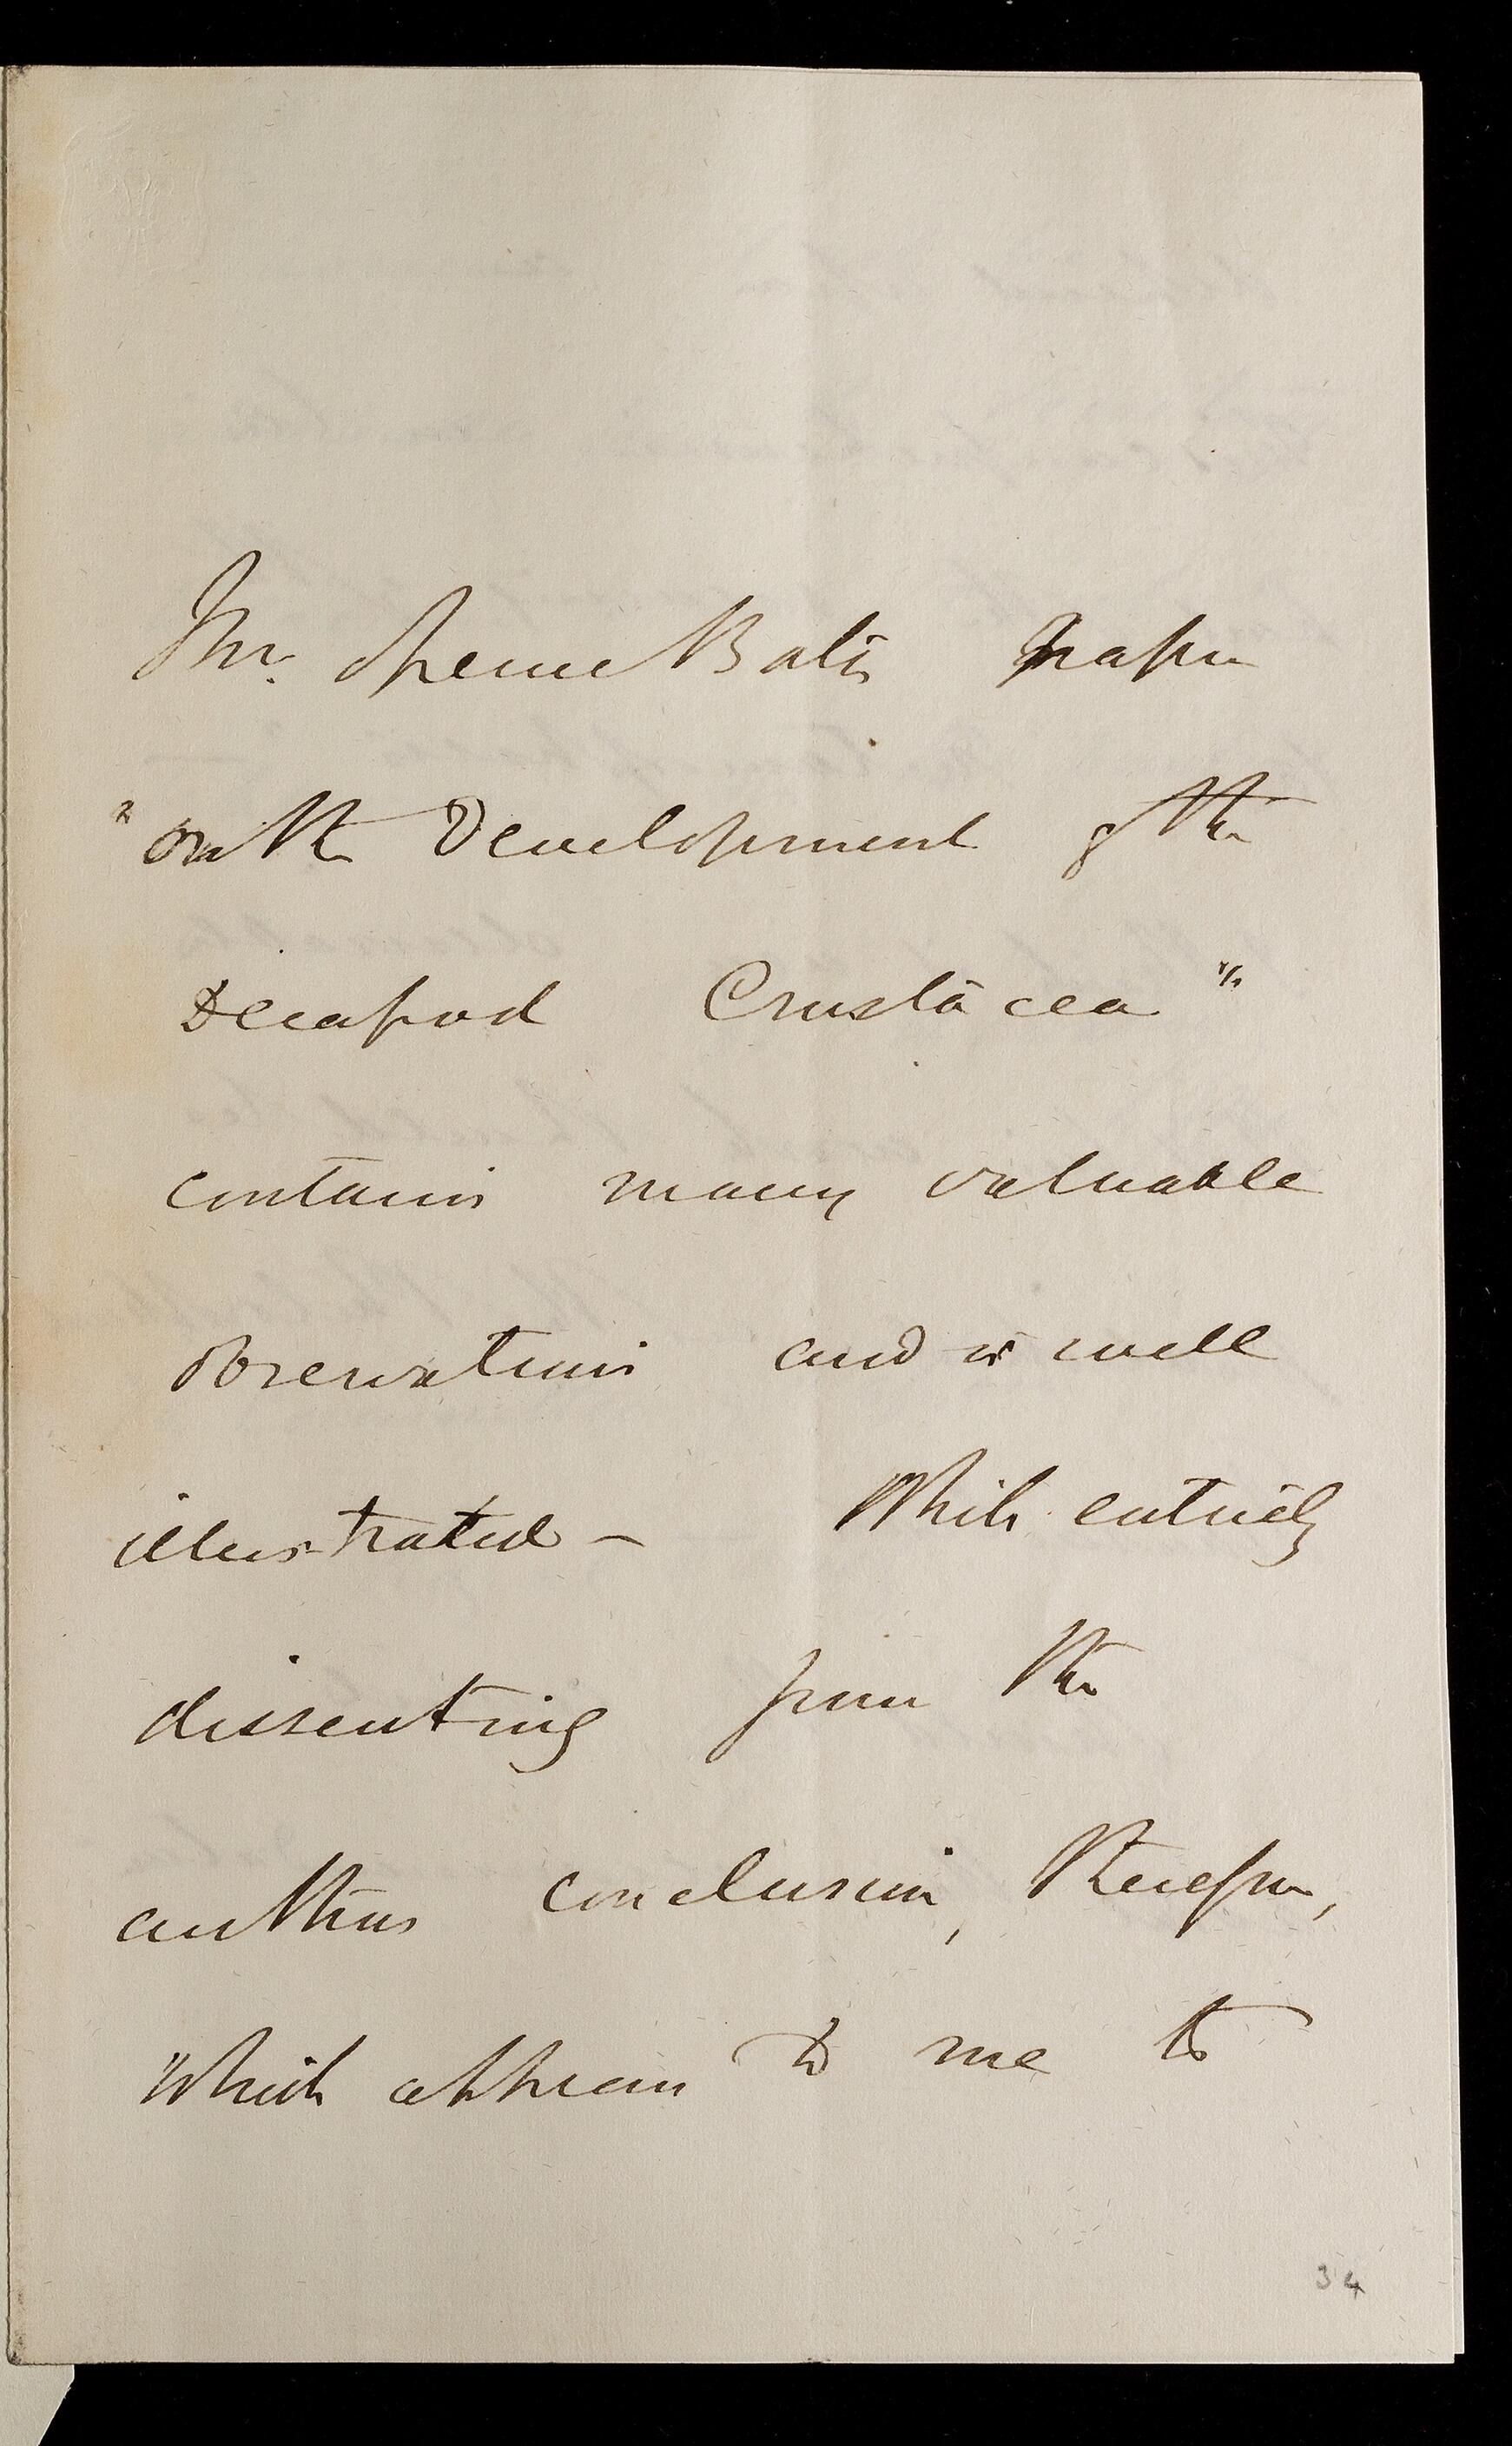 Mr. Spence Bate's paper
"on the Development of the
Decapod Crustacea"
contains many valuable
observations and is well
illustrated –  While entirely
dissenting from the
authors conclusion, therefore,
which appears to me to
34